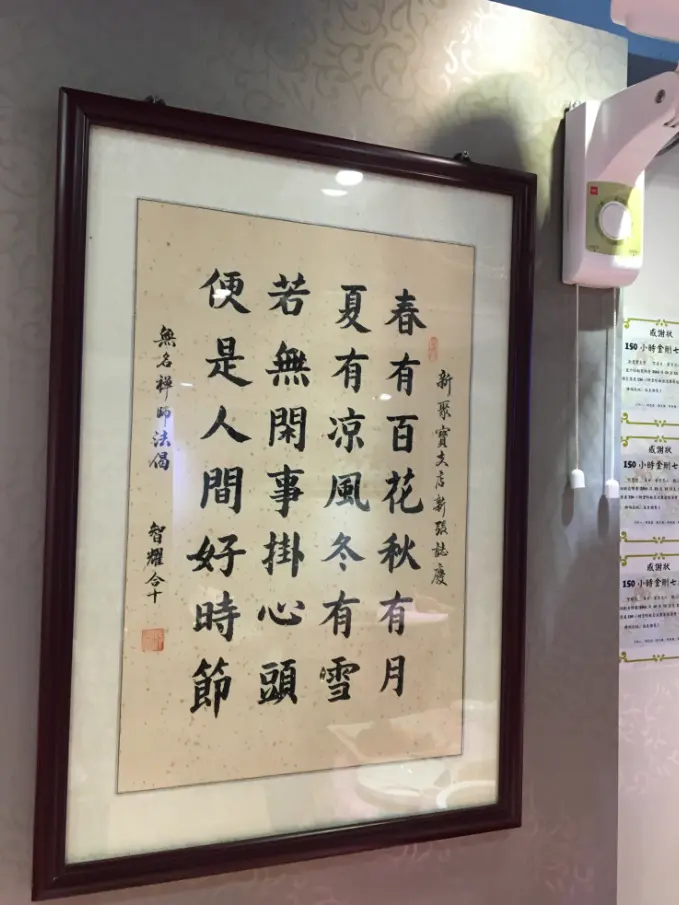 新聚寶支店新張誌慶
春有百花秋有月
夏有凉風冬有雪
若無閑事掛心頭
便是人間好時節
無名禪師法偈
智耀合十
感謝狀
150 小時金剛七
感謝狀
150 小時金剛七
感謝狀
150 小時金剛七